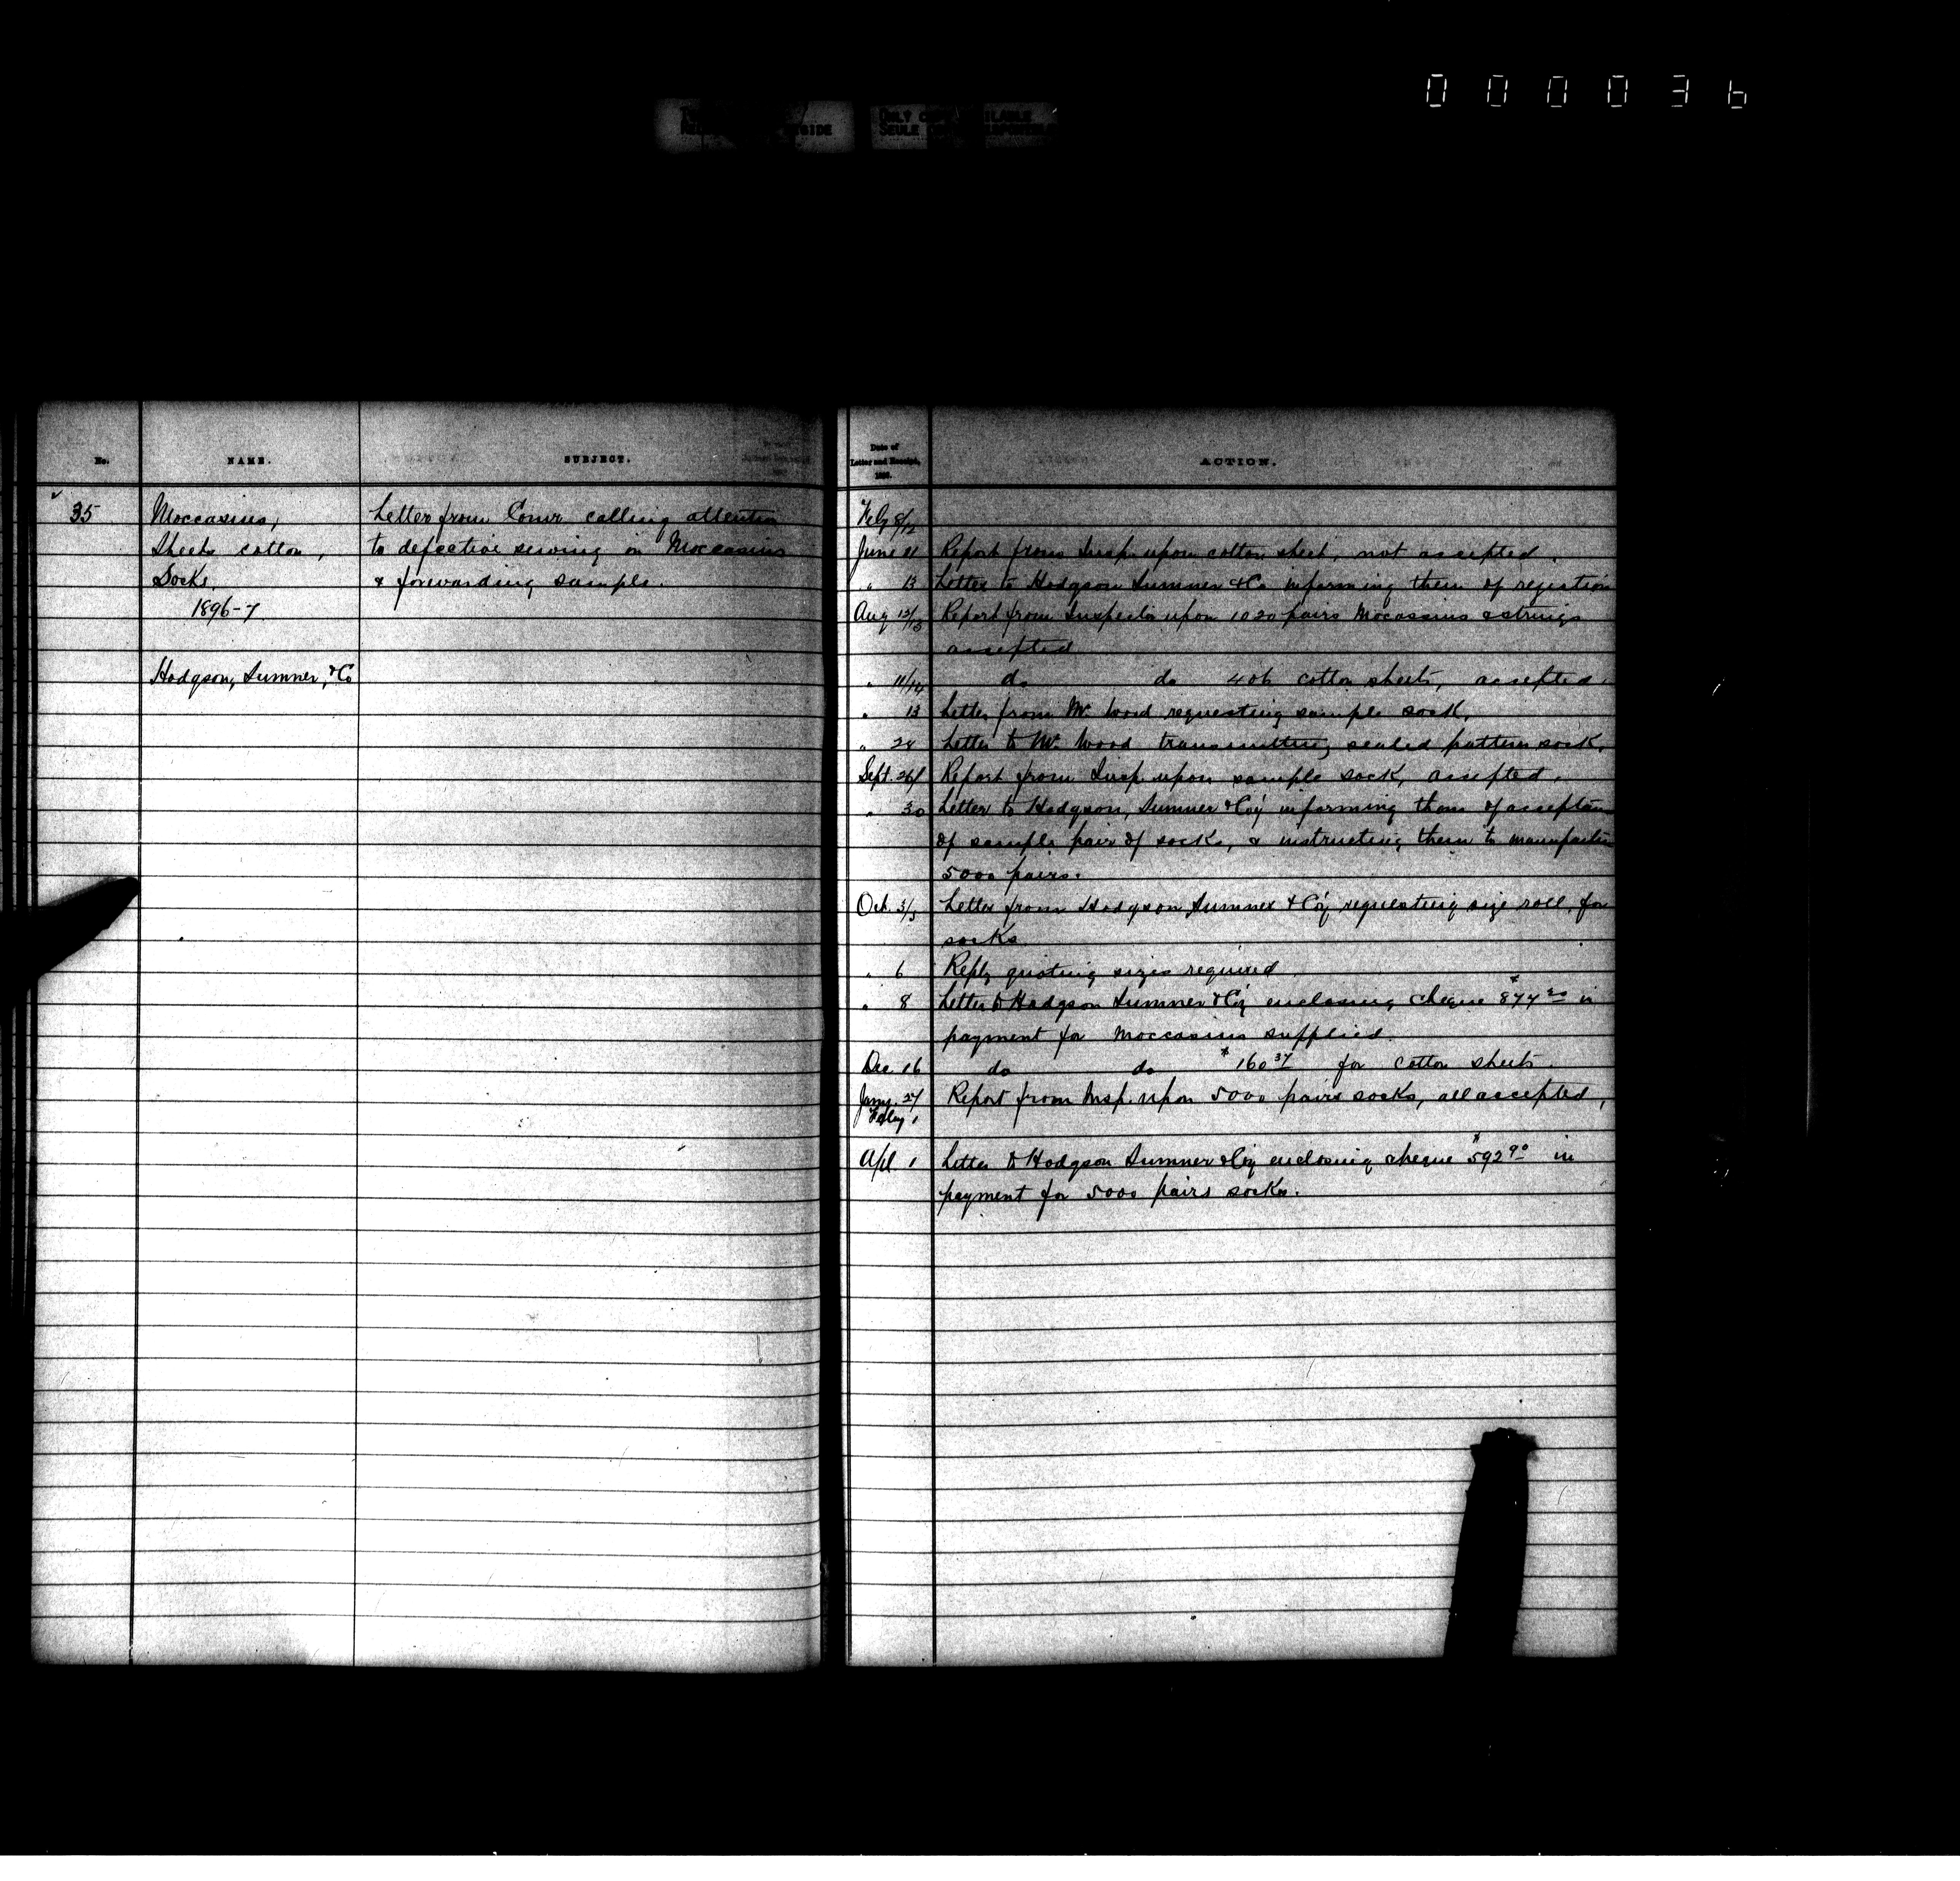 000036
ONLY COPY AVAILABLE
SEULE
No.
NAME.
SUBJECT.
35
Moccasins,
Sheets cotton,
Socks.
1896-7
Hodgson, Sumner, & Co
Letter from Comr calling attention
to defective sewing in Moccasins
& forwarding sample.
Date of
Letter and Receipt,
ACTION.
Feby 8/12
June 11 Report from Insp. upon cotton sheet, not accepted.
" 13 Letter to Hodgson Sumner & Co informing them of rejection
Aug 12/13 Report from Inspector upon 1020 pairs Moccasins & strings
accepted
" 11/14 do do 406 cotton sheets, accepted.
" 13 Letter from Mr. Wood requesting sample sock.
" 24 Letter to Mr. Wood transmitting sealed pattern sock.
Sept. 26/ Report from Insp. upon sample sock, accepted.
" 30 Letter to Hodgson, Sumner & Coy informing them of acceptance
of sample pair of socks, & instructing them to manufacture
5000 pairs.
Oct. 3/5 Letter from Hodgson Sumner & Coy requesting size roll for
socks
" 6 Reply quoting sizes required.
" 8 Letter to Hodgson Sumner & Coy enclosing cheque in
payment for Moccasins supplied.
Dec 16 do do $160 37 for cotton sheets.
Jany. 27 Report from Insp. upon 5000 pairs socks, all accepted,
Feby 1
Apl 1 Letter to Hodgson Sumner & Coy enclosing cheque $592 90 in
payment for 5000 pairs socks.